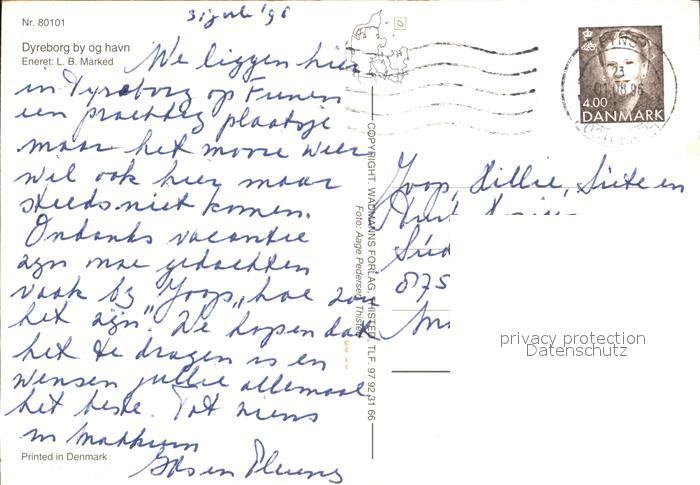 Nr. 80101
31 juli '96
Dyreborg by og havn
Eneret: L. B. Marked
We liggen hier
in Dyreborg op Funen
een prachtig plaatsje
maar het mooie weer
wil ook hier maar
steeds niet komen.
Ondanks vacantie
zijn mae gedachten
vaak by Joop, "hoe zou
het zijn". We hopen dat
het te dragen is en
wensen jullie allemaal
het beste. Tot ziens
in Makkum
en
Printed in Denmark
COPYRIGHT WADMANNS FORLAG, THISTED, TLF. 97 92 31 66
Foto: Aage Pedersen, Thisted
4.00
DANMARK
23
01.08.96
Joop, Hillie, Siete en
Súd
875
privacy protection
Datenschutz